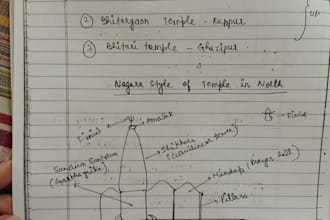 ② Bhitargaon Temple - Kanpur
③ Bhitari temple - Ghazipur
Nagara Style of Temple in North
Finial
Amalak
Finial
Shikhara
(Curvilinear tower)
Sanctum Sanctorum
(Garbhagriha)
Mandap (Prayer hall)
Pillars